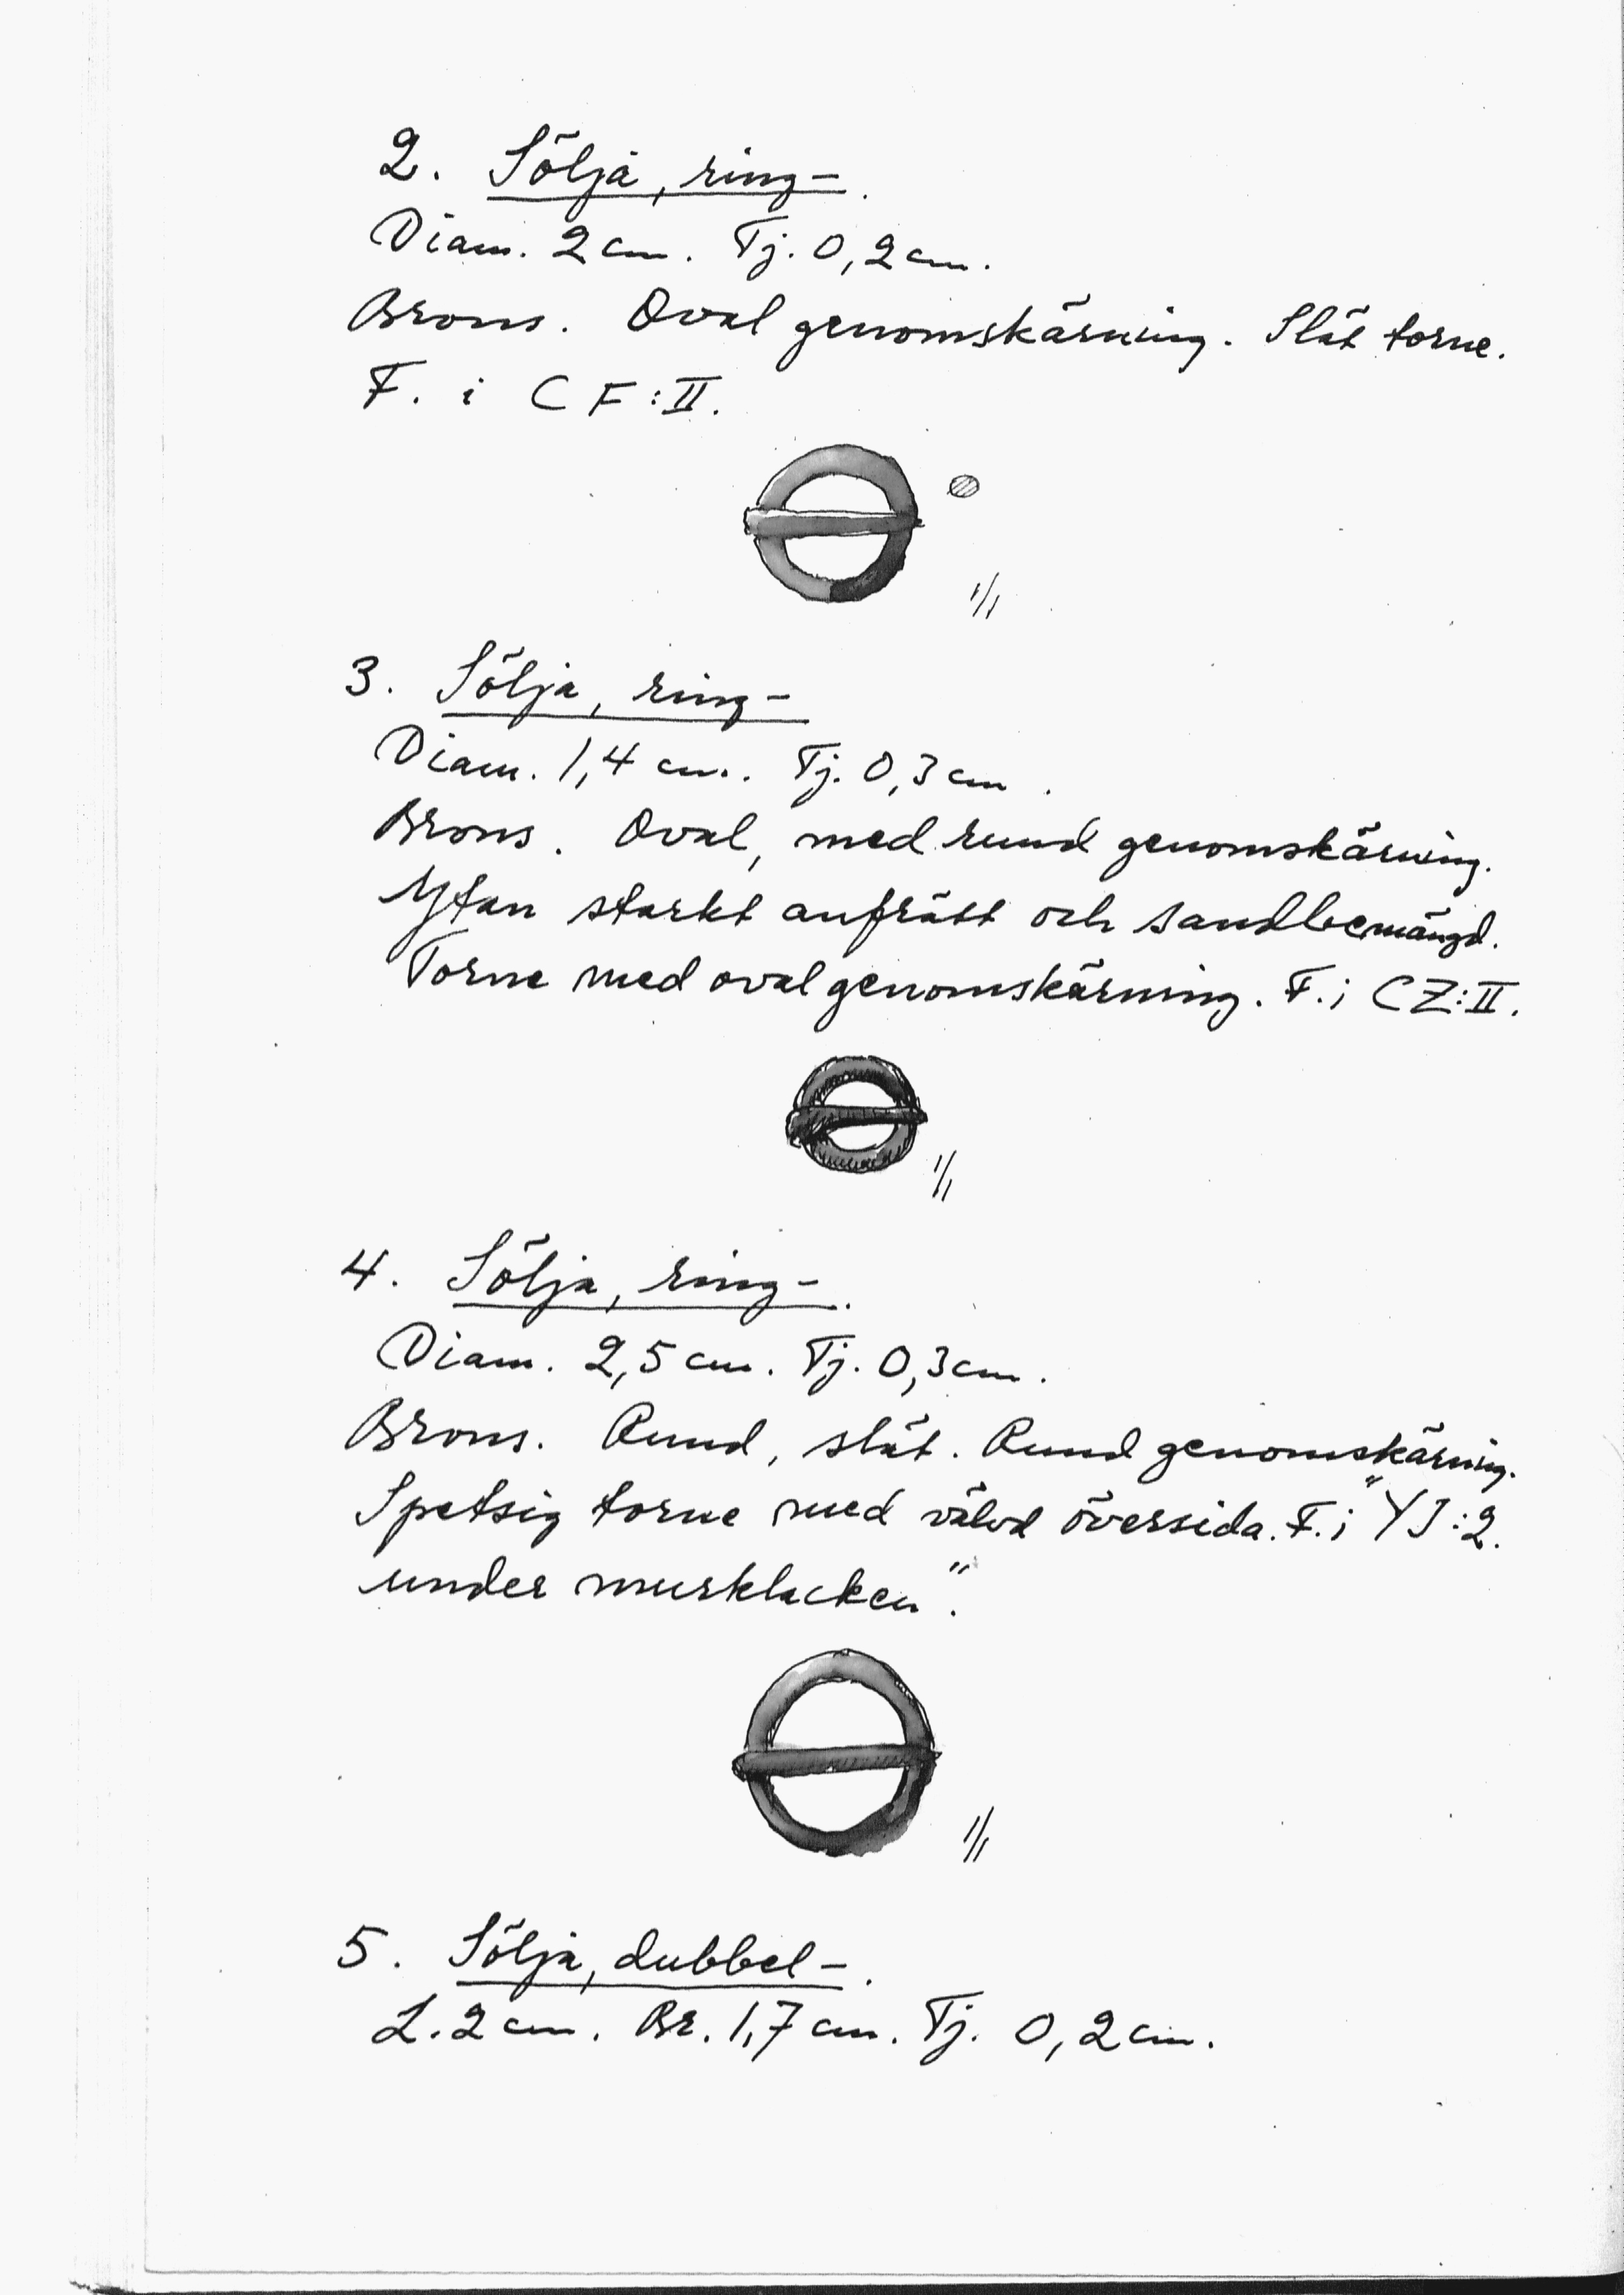 2. Sölja, ring-.
Diam. 2 cm. Tj. 0,2 cm.
Brons. Oval genomskärning. Slät torne.
F. i CF:II.
1/1
3. Sölja, ring-
Diam. 1,4 cm. Tj. 0,3 cm.
Brons. Oval, med rund genomskärning.
Ytan starkt anfrätt och sandbemängd.
Torne med oval genomskärning. F. i CZ:II.
1/1
4. Sölja, ring-.
Diam. 2,5 cm. Tj. 0,3 cm.
Brons. Rund, slät. Rund genomskärning.
Spetsig torne med välvd översida. F. i "YJ:2.
under murklacken".
1/1
5. Sölja, dubbel-.
L. 2 cm. Br. 1,7 cm. Tj. 0,2 cm.